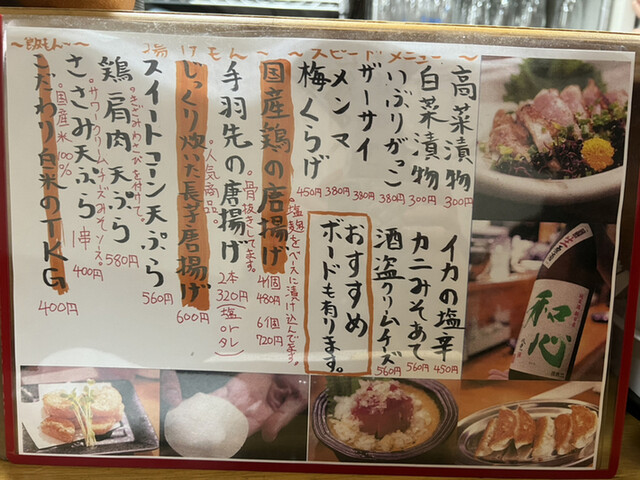 ~スピードメニュー~
高菜漬物 300円
白菜漬物 300円
いぶりがっこ 380円
ザーサイ 380円
メンマ 380円
梅くらげ 450円
イカの塩辛 450円
カニみそあて 560円
酒盗クリームチーズ 560円
おすすめ
ボードも有ります。
~揚げもん~
国産鶏の唐揚げ 4個 480円 6個 720円
塩麹をベースに漬け込んでます。
手羽先の唐揚げ 2本 320円(塩orタレ)
・骨抜きしてます。
・人気商品
じっくり炊いた長芋唐揚げ 600円
スイートコーン天ぷら 560円
鶏肩肉天ぷら 580円
・きざみわさびを付けて。
ささみ天ぷら 1串 400円
・サワークリームチーズみそソース
~飯もん~
こだわり白米のTKG 400円
・国産米100%
和心